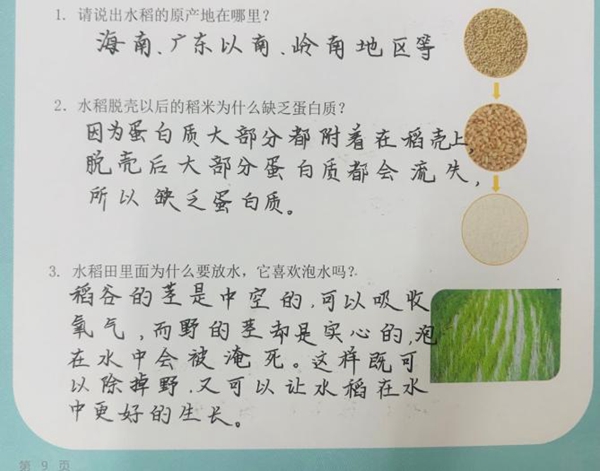 1. 请说出水稻的原产地在哪里?
海南、广东以南、岭南地区等
2. 水稻脱壳以后的稻米为什么缺乏蛋白质?
因为蛋白质大部分都附着在稻壳上,
脱壳后大部分蛋白质都会流失,
所以缺乏蛋白质。
3. 水稻田里面为什么要放水，它喜欢泡水吗?
稻谷的茎是中空的,可以吸收
氧气,而野的茎却是实心的,泡
在水中会被淹死。这样既可
以除掉野,又可以让水稻在水
中更好的生长。
第 9 页